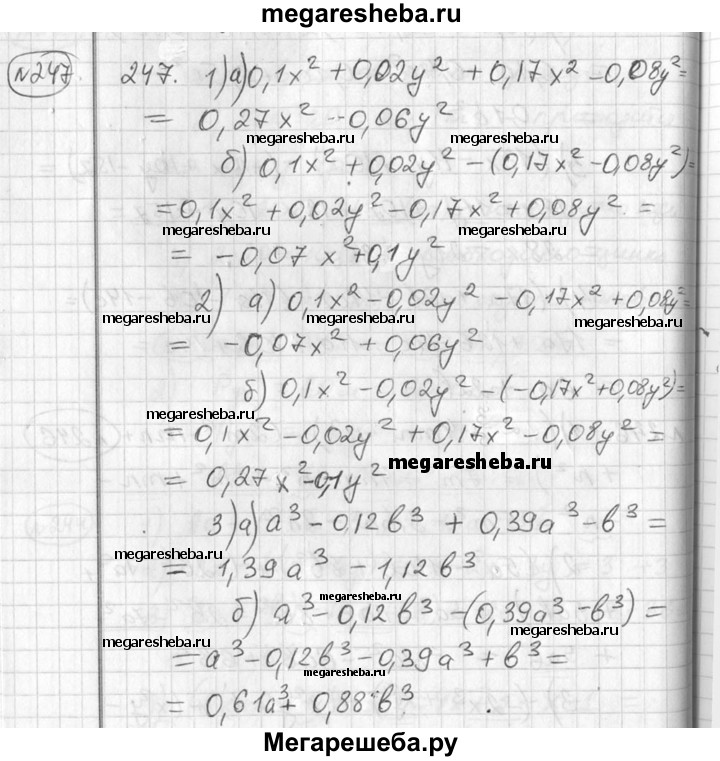 megaresheba.ru
№247 247. 1) а) 0,1x² + 0,02y² + 0,17x² - 0,08y² =
= 0,27x² - 0,06y²
megaresheba.ru megaresheba.ru
б) 0,1x² + 0,02y² - (0,17x² - 0,08y²) =
= 0,1x² + 0,02y² - 0,17x² + 0,08y² =
megaresheba.ru megaresheba.ru megaresheba.ru
= -0,07x² + 0,1y²
2) а) 0,1x² - 0,02y² - 0,17x² + 0,08y² =
megaresheba.ru megaresheba.ru megaresheba.ru
= -0,07x² + 0,06y²
б) 0,1x² - 0,02y² - (-0,17x² + 0,08y²) =
megaresheba.ru
= 0,1x² - 0,02y² + 0,17x² - 0,08y² =
megaresheba.ru
= 0,27x² - 0,1y²
3) а) a³ - 0,12b³ + 0,39a³ - b³ =
megaresheba.ru
= 1,39a³ - 1,12b³
megaresheba.ru
б) a³ - 0,12b³ - (0,39a³ - b³) =
megaresheba.ru megaresheba.ru
= a³ - 0,12b³ - 0,39a³ + b³ =
= 0,61a³ + 0,88b³
megaresheba.ru
Мегарешеба.ру